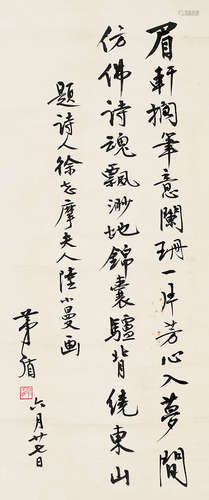 眉軒擱筆意闌珊一片芳心入夢間
仿佛詩魂飄渺地錦囊驢背繞東山
題詩人徐志摩夫人陸小曼画
茅盾
六月廿七日